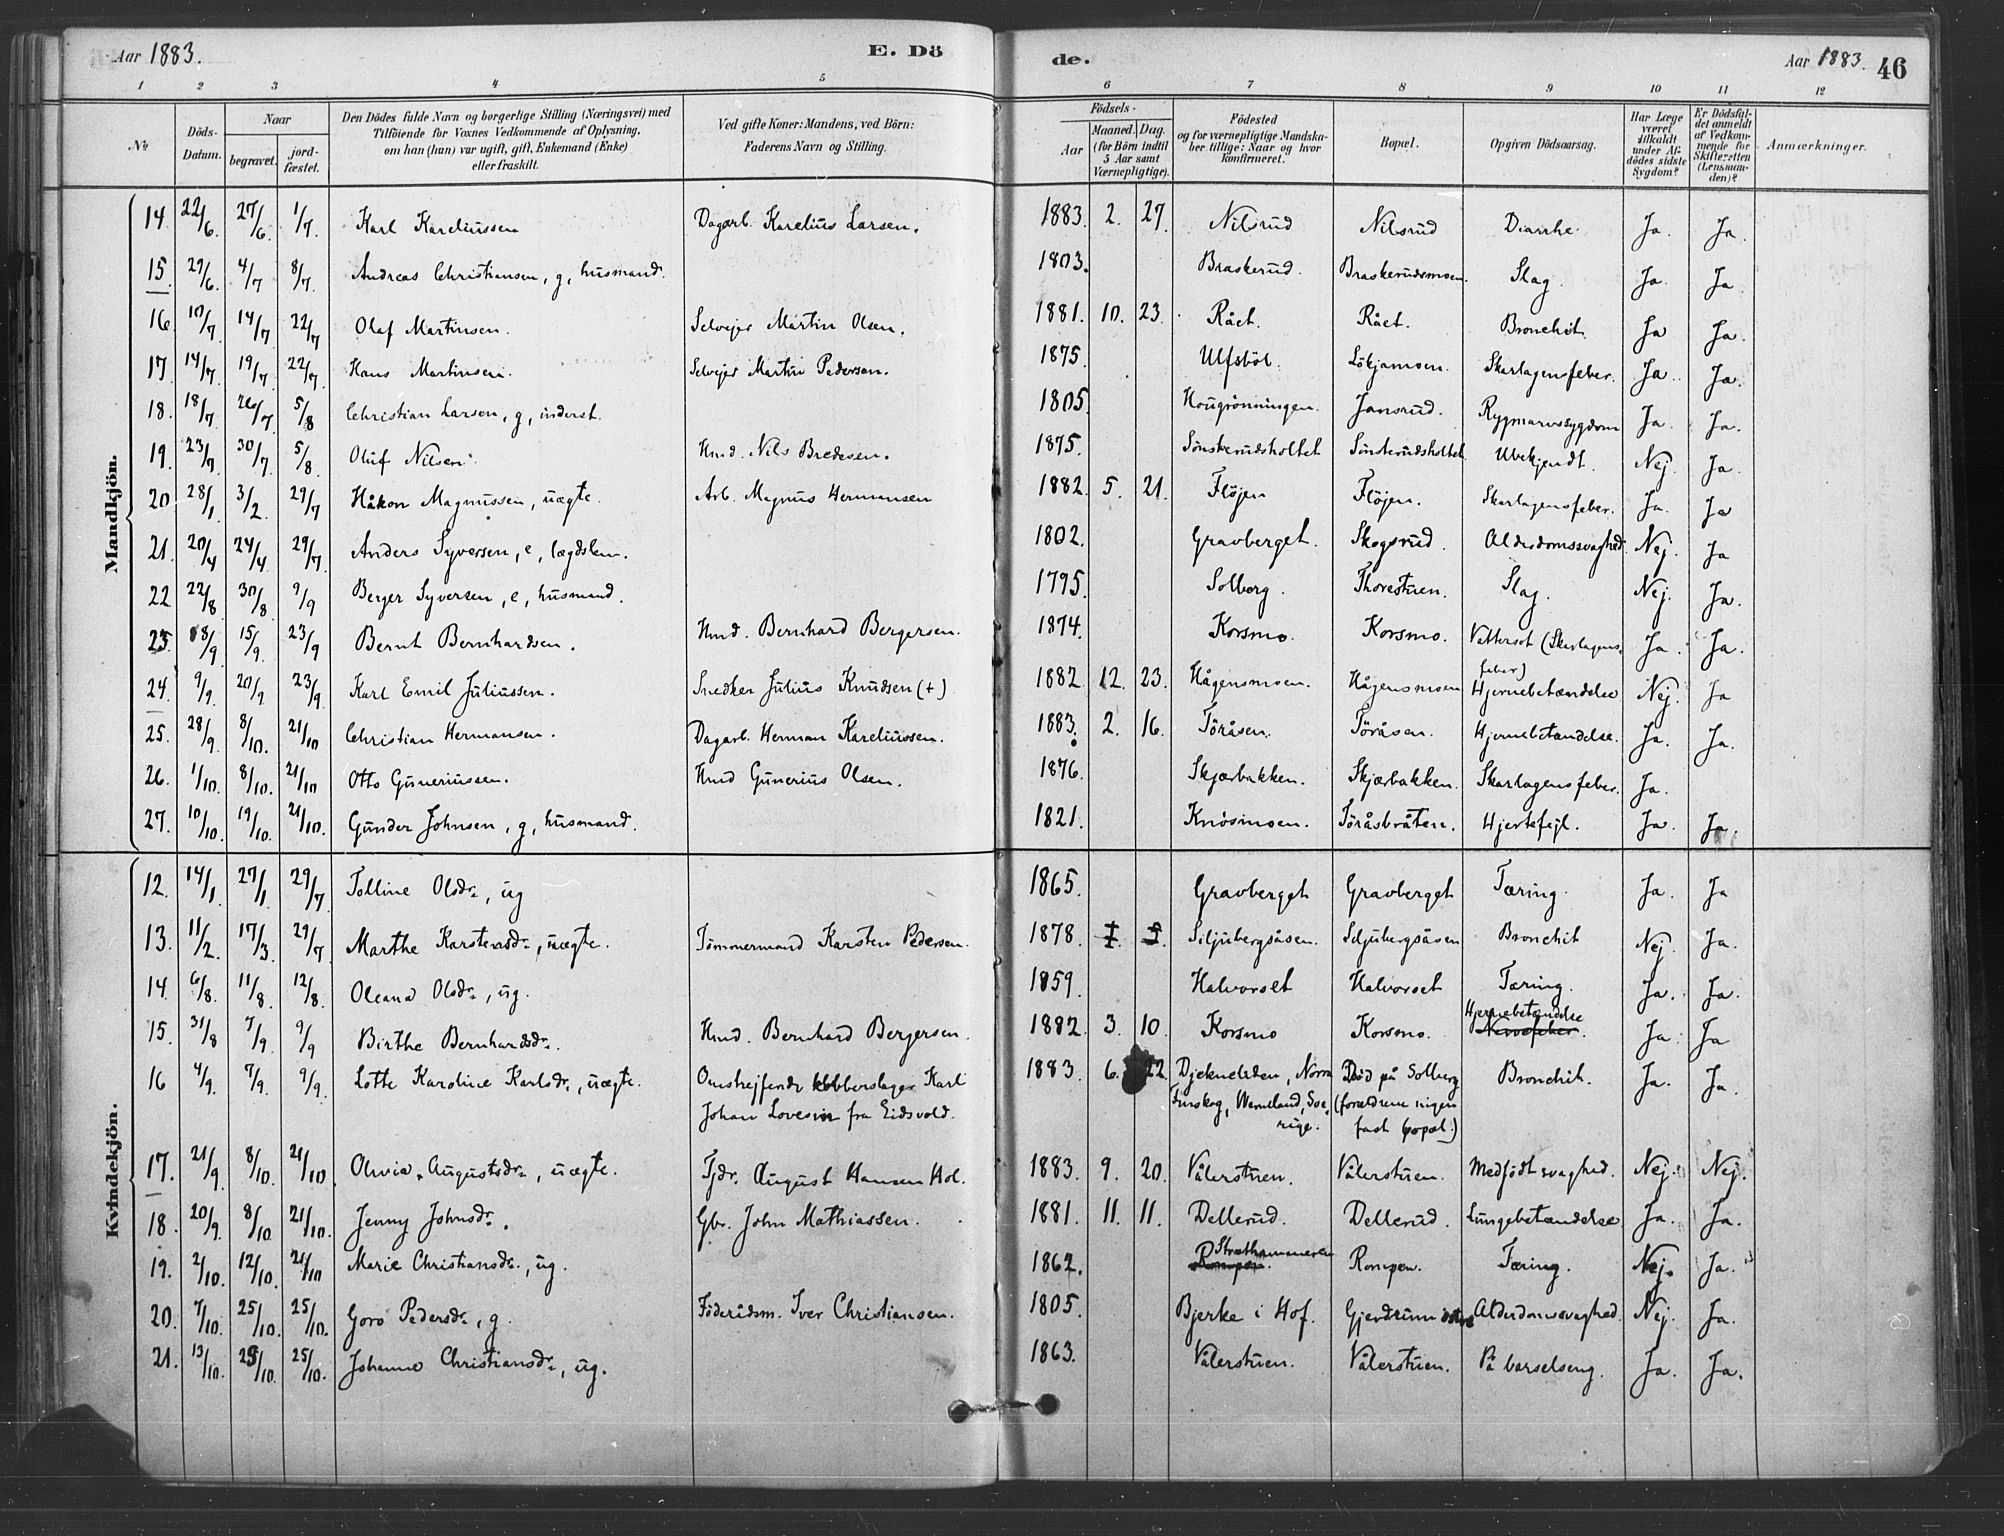 Aar 1883. E. Dö de. Aar 1883. 46
1 2 3 4 5 6 7 8 9 10 11 12
№ Döds-Datum. Naar begravet. jord-fæstet. Den Dödes fulde Navn og borgerlige Stilling (Næringsvei) med Tilföiende for Voxnes Vedkommende af Oplysning, om han (hun) var ugift, gift, Enkemand (Enke) eller fraskilt. Ved gifte Koner: Mandens, ved Börn: Faderens Navn og Stilling. Födsels- Aar Maaned. Dag. (for Börn indtil 5 Aar samt Værnepligtige). Födested og for værnepligtige Mandska-ber tillige: Naar og hvor konfirmeret. Bopæl. Opgiven Dödsaarsag. Har Læge været tilkaldt under Af-dödes sidste Sygdom? Er Dödsfal-det anmeldt af Vedkom-mende for Skifteretten (Lensman-den)? Anmærkninger.
Mandkjön.
14. 22/6. 27/6. 1/7. Karl Kareliussen Dagarb. Karelius Larsen. 1883. 2. 27. Nilsrud Nilsrud Diarrhe. Ja. Ja.
15. 29/6. 4/7 8/7. Andreas Christiansen, g, husmand. 1803. Braskerud. Braskerudsmoen. Slag. Ja. Ja
16. 10/7. 14/7. 22/7 Olaf Martinsen. Selvejer Martin Olsen. 1881. 10. 23. Rået. Rået. Bronchit. Ja Ja.
17. 14/7. 19/7. 22/7. Hans Martinsen. Selvejer Martin Pedersen. 1875. Ulfsböl. Lökjamoen. Skarlagensfeber. Ja. Ja.
18. 18/7. 26/7. 5/8 Christian Larsen, g, inderst. 1805. Hougrönningen. Jansrud. Rygmarvssygdom Ja. Ja.
19. 23/7. 30/7. 5/8. Oluf Nilsen. Hmd. Nils Bredesen. 1875. Sönskerudsholtet Sönsterudsholtet. Ubekjendt. Nej. Ja.
20 28/1. 3/2. 29/7 Håkon Magnussen, uægte. Arb. Magnus Hermansen 1882. 5. 21. Fløjen Fløjen. Skarlagensfeber. Ja. Ja
21. 20/4 24/4. 29/7. Anders Syversen, e, lægdslem. 1802. Gravberget. Skogsrud. Alderdomssvaghed. Nej. Ja
22 22/8 30/8. 9/9 Berger Syversen, e, husmand. 1795. Solberg. Thorestuen. Slag. Nej. Ja.
23. 8/9. 15/9. 23/9 Bernt Bernhardsen. Hmd. Bernhard Bergersen. 1874. Korsmo. Korsmo. Vattersot (Skarlagens-feber) Ja. Ja.
24. 9/9. 20/9 23/9. Karl Emil Juliussen. Snedker Julius Knudsen (+) 1882 12. 23. Hågensmoen. Hågensmoen Hjernebetændelse Nej. Ja
25. 28/9. 8/10. 21/10 Christian Hermansen. Dagarb. Herman Kareliussen. 1883. 2. 16. Töråsen. Töråsen. Hjernebetændelse. Ja. Ja.
26. 1/10. 8/10. 21/10 Otto Gunerriussen. Hmd Gunerius Olsen. 1876. Skjærbakken. Skjærbakken. Skarlagensfeber. Ja.
27. 10/10. 19/10. 21/10. Gunder Johnsen, g, husmand. 1821. Knösmoen. Töråsbråten. Hjertefejl. Ja. Ja.
Kvindekjön.
12. 14/1. 27/1. 29/7 Tolline Olsdr., ug 1865. Gravberget Gravberget Tæring. Ja. Ja
13. 11/2. 17/3 29/7 Marthe Karstensdr., uægte. Tömmermand Karsten Pedersen. 1878. Siljubergsåsen. Siljubergsåsen Bronchit Nej. Ja.
14 6/8. 11/8. 12/8. Oleana Olsdr., ug. 1859. Halvorset Halvorset Tæring. Ja. Ja.
15. 31/8 7/9. 9/9 Birthe Bernhardsdr. Hmd. Bernhard Bergersen. 1882. 3. 10. Korsmo Korsmo. Hjernebetændelse Nervefeber. Ja. Ja
16 4/9. 7/9. 9/9. Lotte Karoline Karlsdr., uægte. Omstrejfende kobberslager Karl 1883. 6. 22. Norra Död på Solberg Bronchit. Ja. Ja.
Johan fra Eidsvold. Finskog, Wermland, Sve-rige. (forældrene ingen fast bopæl.)
17. 21/9. 8/10. 21/10 Olivia Augustsdr., uægte. Tjdr. August Hansen Hol. 1883. 9. 20. Vålerstuen. Vålerstuen. Medfödt svaghed. Nej. Nej.
18. 20/9. 8/10 21/10. Jenny Johnsdr. Gbr. John Mathiassen. 1881. 11. 11. Dellerud. Dellerud. Lungebetændelse Ja. Ja.
19. 2/10. 12/10. 21/10 Marie Christiansdr., ug. 1862. Rompen. Rompen. Tæring. Nej. Ja.
20. 7/10. 25/10. 25/10. Goro Pedersdr., g. Föderådsm. Iver Christiansen. 1805. Bjerke i Hof. Gjerdrum östre Alderdomssvaghed. Nej. Ja.
21. 13/10. 25/10. 25/10. Johanne Christiansdr., ug. 1863. Vålerstuen. Vålerstuen. På barselseng. Ja. Ja.